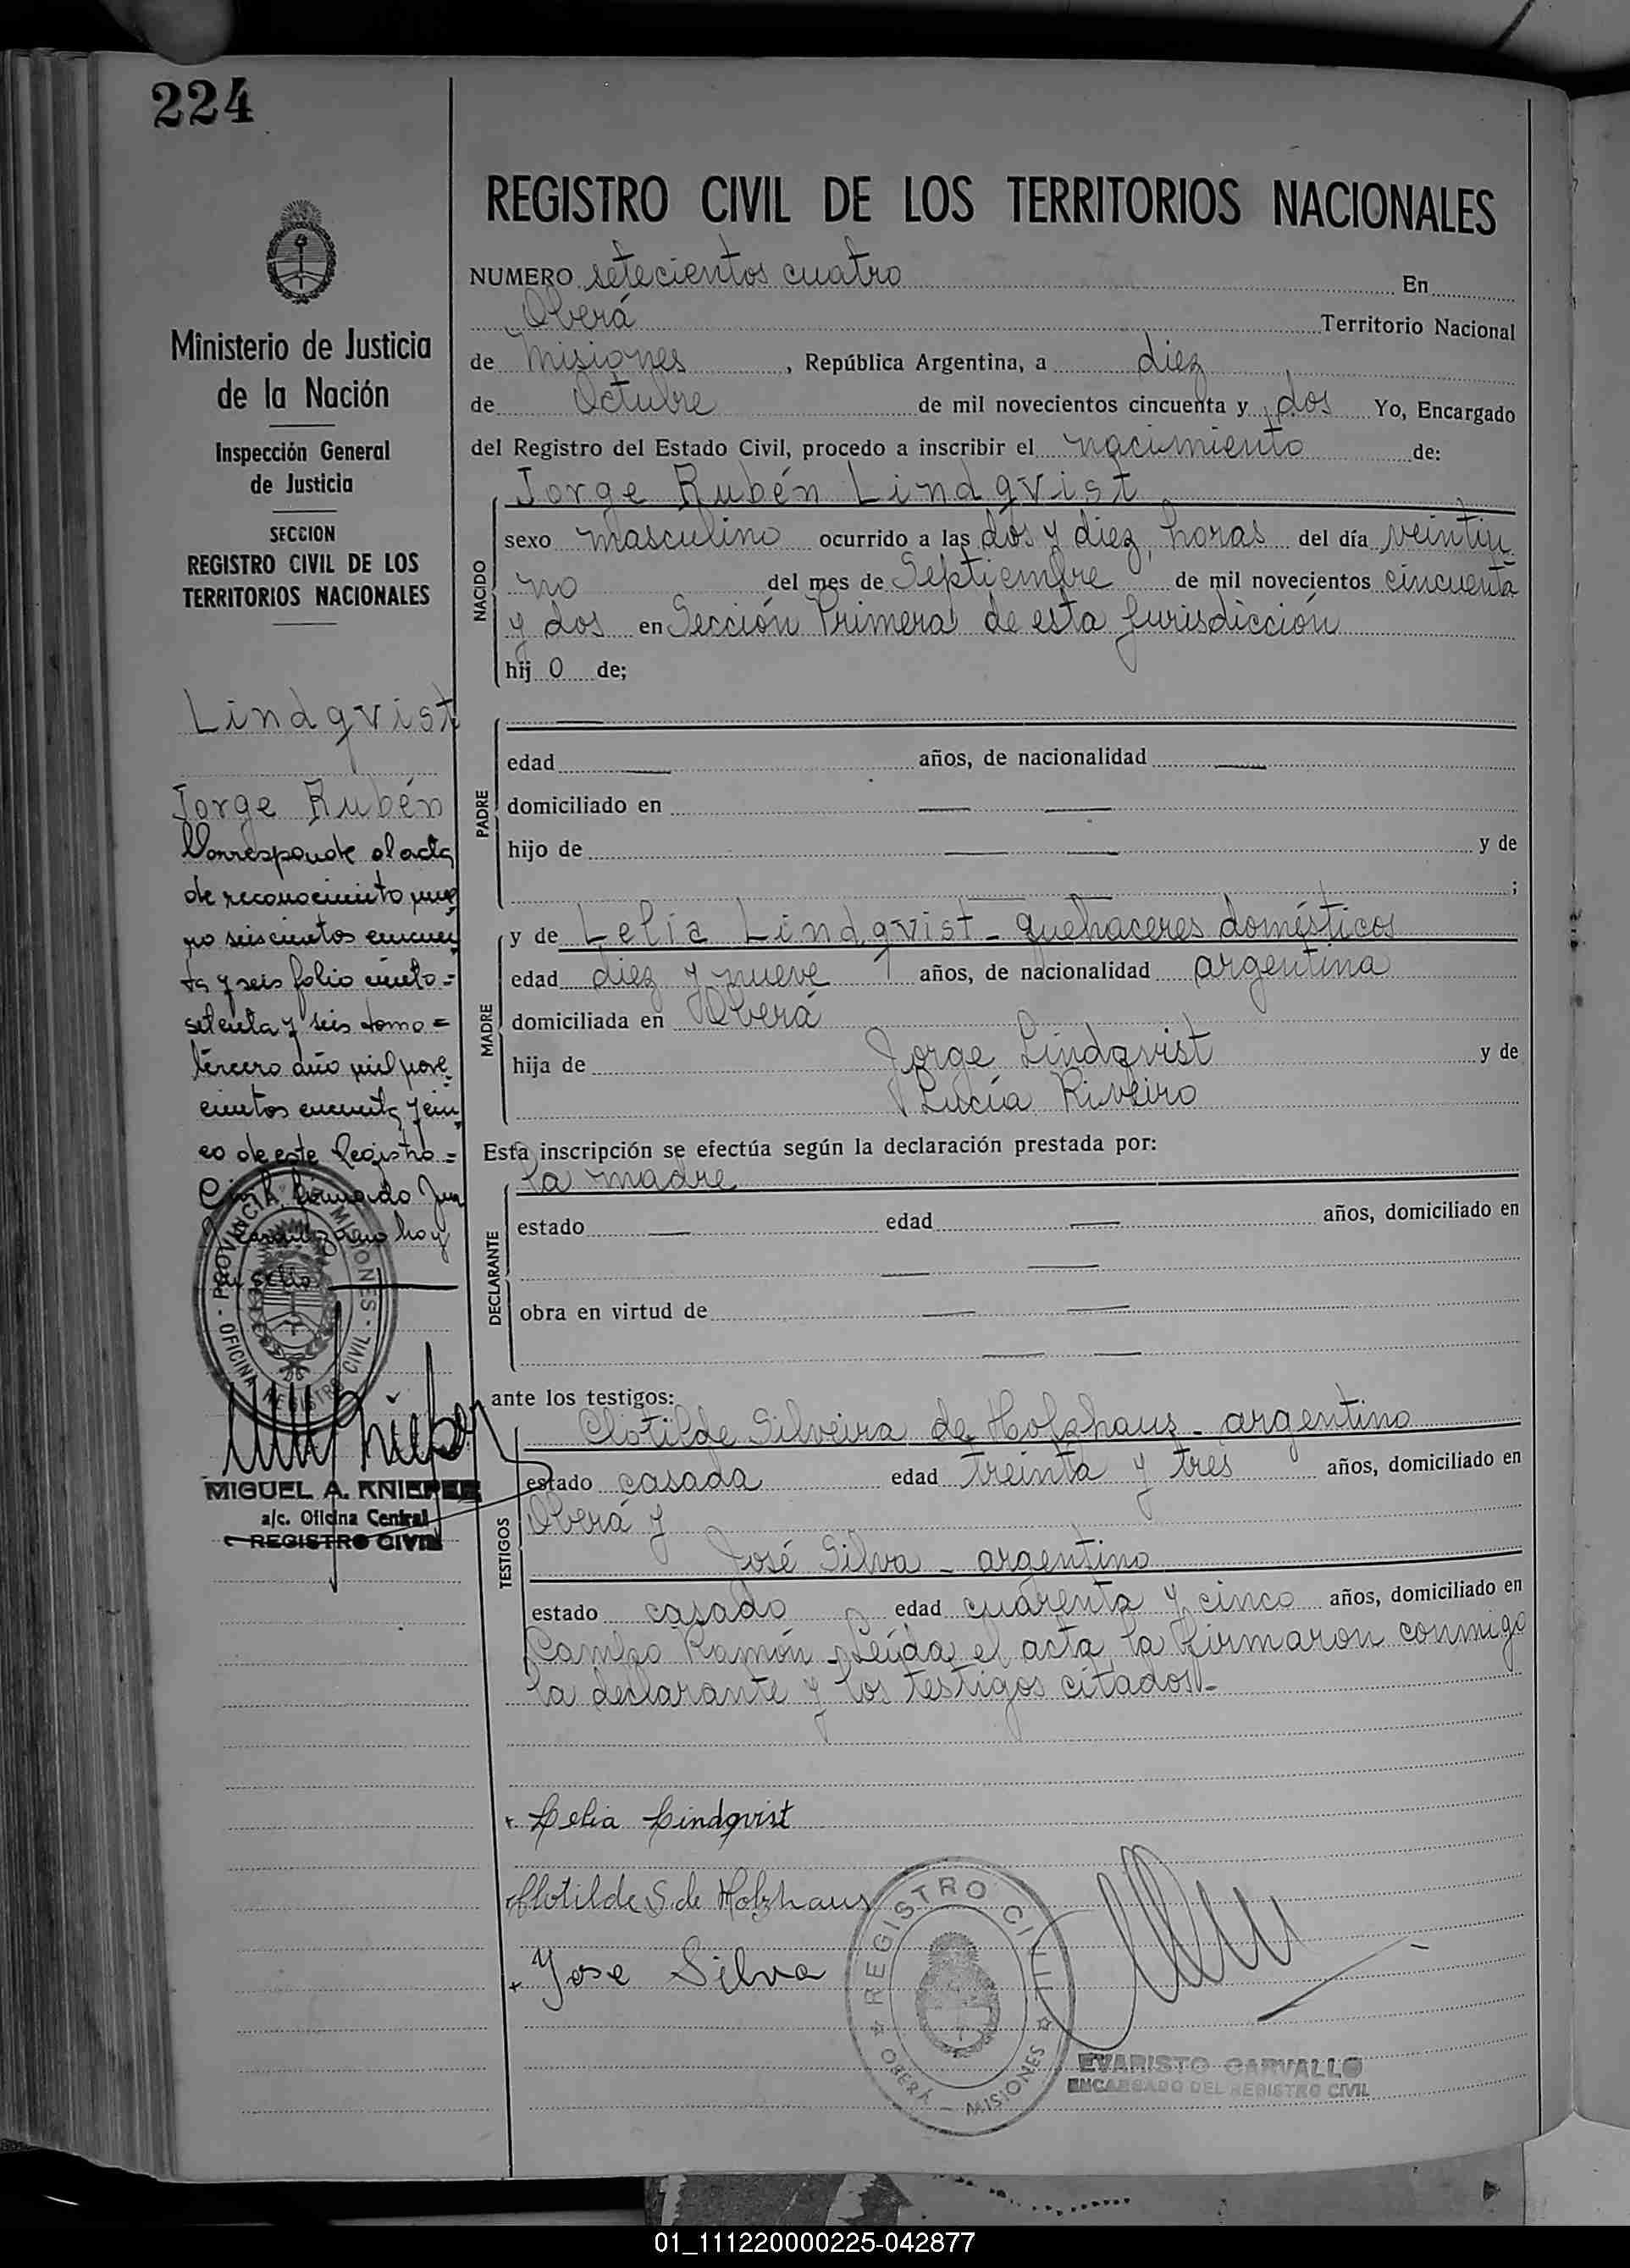 224
Ministerio de Justicia
de la Nación
Inspección General
de Justicia
SECCION
REGISTRO CIVIL DE LOS
TERRITORIOS NACIONALES
Lindqvist
Jorge Rubén
Corresponde al acta
de reconocimiento nume
ro seiscientos cincuen
ta y seis folio ciento =
setenta y seis tomo =
tercero año mil nove
cientos cincuenta y cin
co de este Registro =
Civil, firmado Juan
hoy
en Sello
PROVINCIA MISIONES - OFICINA REGISTRO CIVIL -
MIGUEL A. KNIEPER
a/c. Oficina Central
REGISTRO CIVIL
REGISTRO CIVIL DE LOS TERRITORIOS NACIONALES
NUMERO setecientos cuatro En
Oberá Territorio Nacional
de Misiones, República Argentina, a diez
de Octubre de mil novecientos cincuenta y dos Yo, Encargado
del Registro del Estado Civil, procedo a inscribir el nacimiento de:
NACIDO
Jorge Rubén Lindqvist
sexo masculino ocurrido a las dos y diez horas del día veintiu
no del mes de Septiembre de mil novecientos cincuenta
y dos en Sección Primera de esta Jurisdicción
hijo de;
PADRE
edad años, de nacionalidad
domiciliado en
hijo de y de
;
MADRE
y de Lelia Lindqvist - quehaceres domésticos
edad diez y nueve años, de nacionalidad argentina
domiciliada en Oberá
hija de Jorge Lindqvist y de
Lucía Riveiro
Esta inscripción se efectúa según la declaración prestada por:
DECLARANTE
la madre
estado edad años, domiciliado en
obra en virtud de
ante los testigos:
TESTIGOS
Clotilde Silveira de Holzhaus - argentino
estado casada edad treinta y tres años, domiciliado en
Oberá y
José Silva - argentino
estado casado edad cuarenta y cinco años, domiciliado en
Campo Ramón - Leída el acta la firmaron conmigo
la declarante y los testigos citados -
Lelia Lindqvist
Clotilde S. de Holzhaus
Jose Silva
REGISTRO CIVIL
OBERÁ - MISIONES
EVARISTO CARVALLO
ENCARGADO DEL REGISTRO CIVIL
01_111220000225-042877